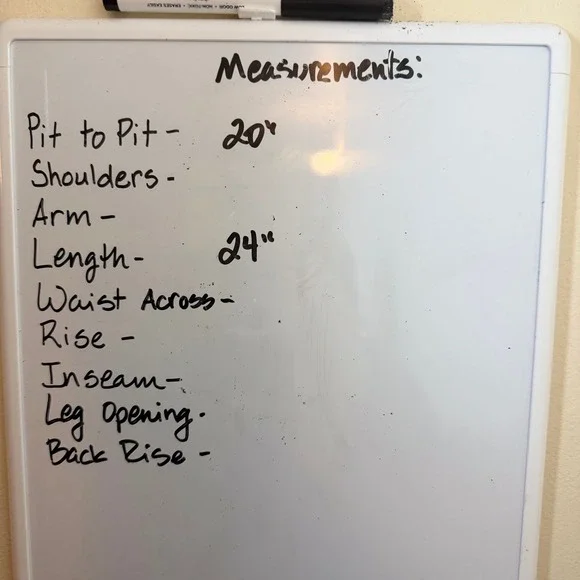 LOW ODOR • NON-TOXIC • ERASES EASILY
Measurements:
Pit to Pit - 20"
Shoulders -
Arm -
Length - 24"
Waist Across -
Rise -
Inseam -
Leg Opening -
Back Rise -